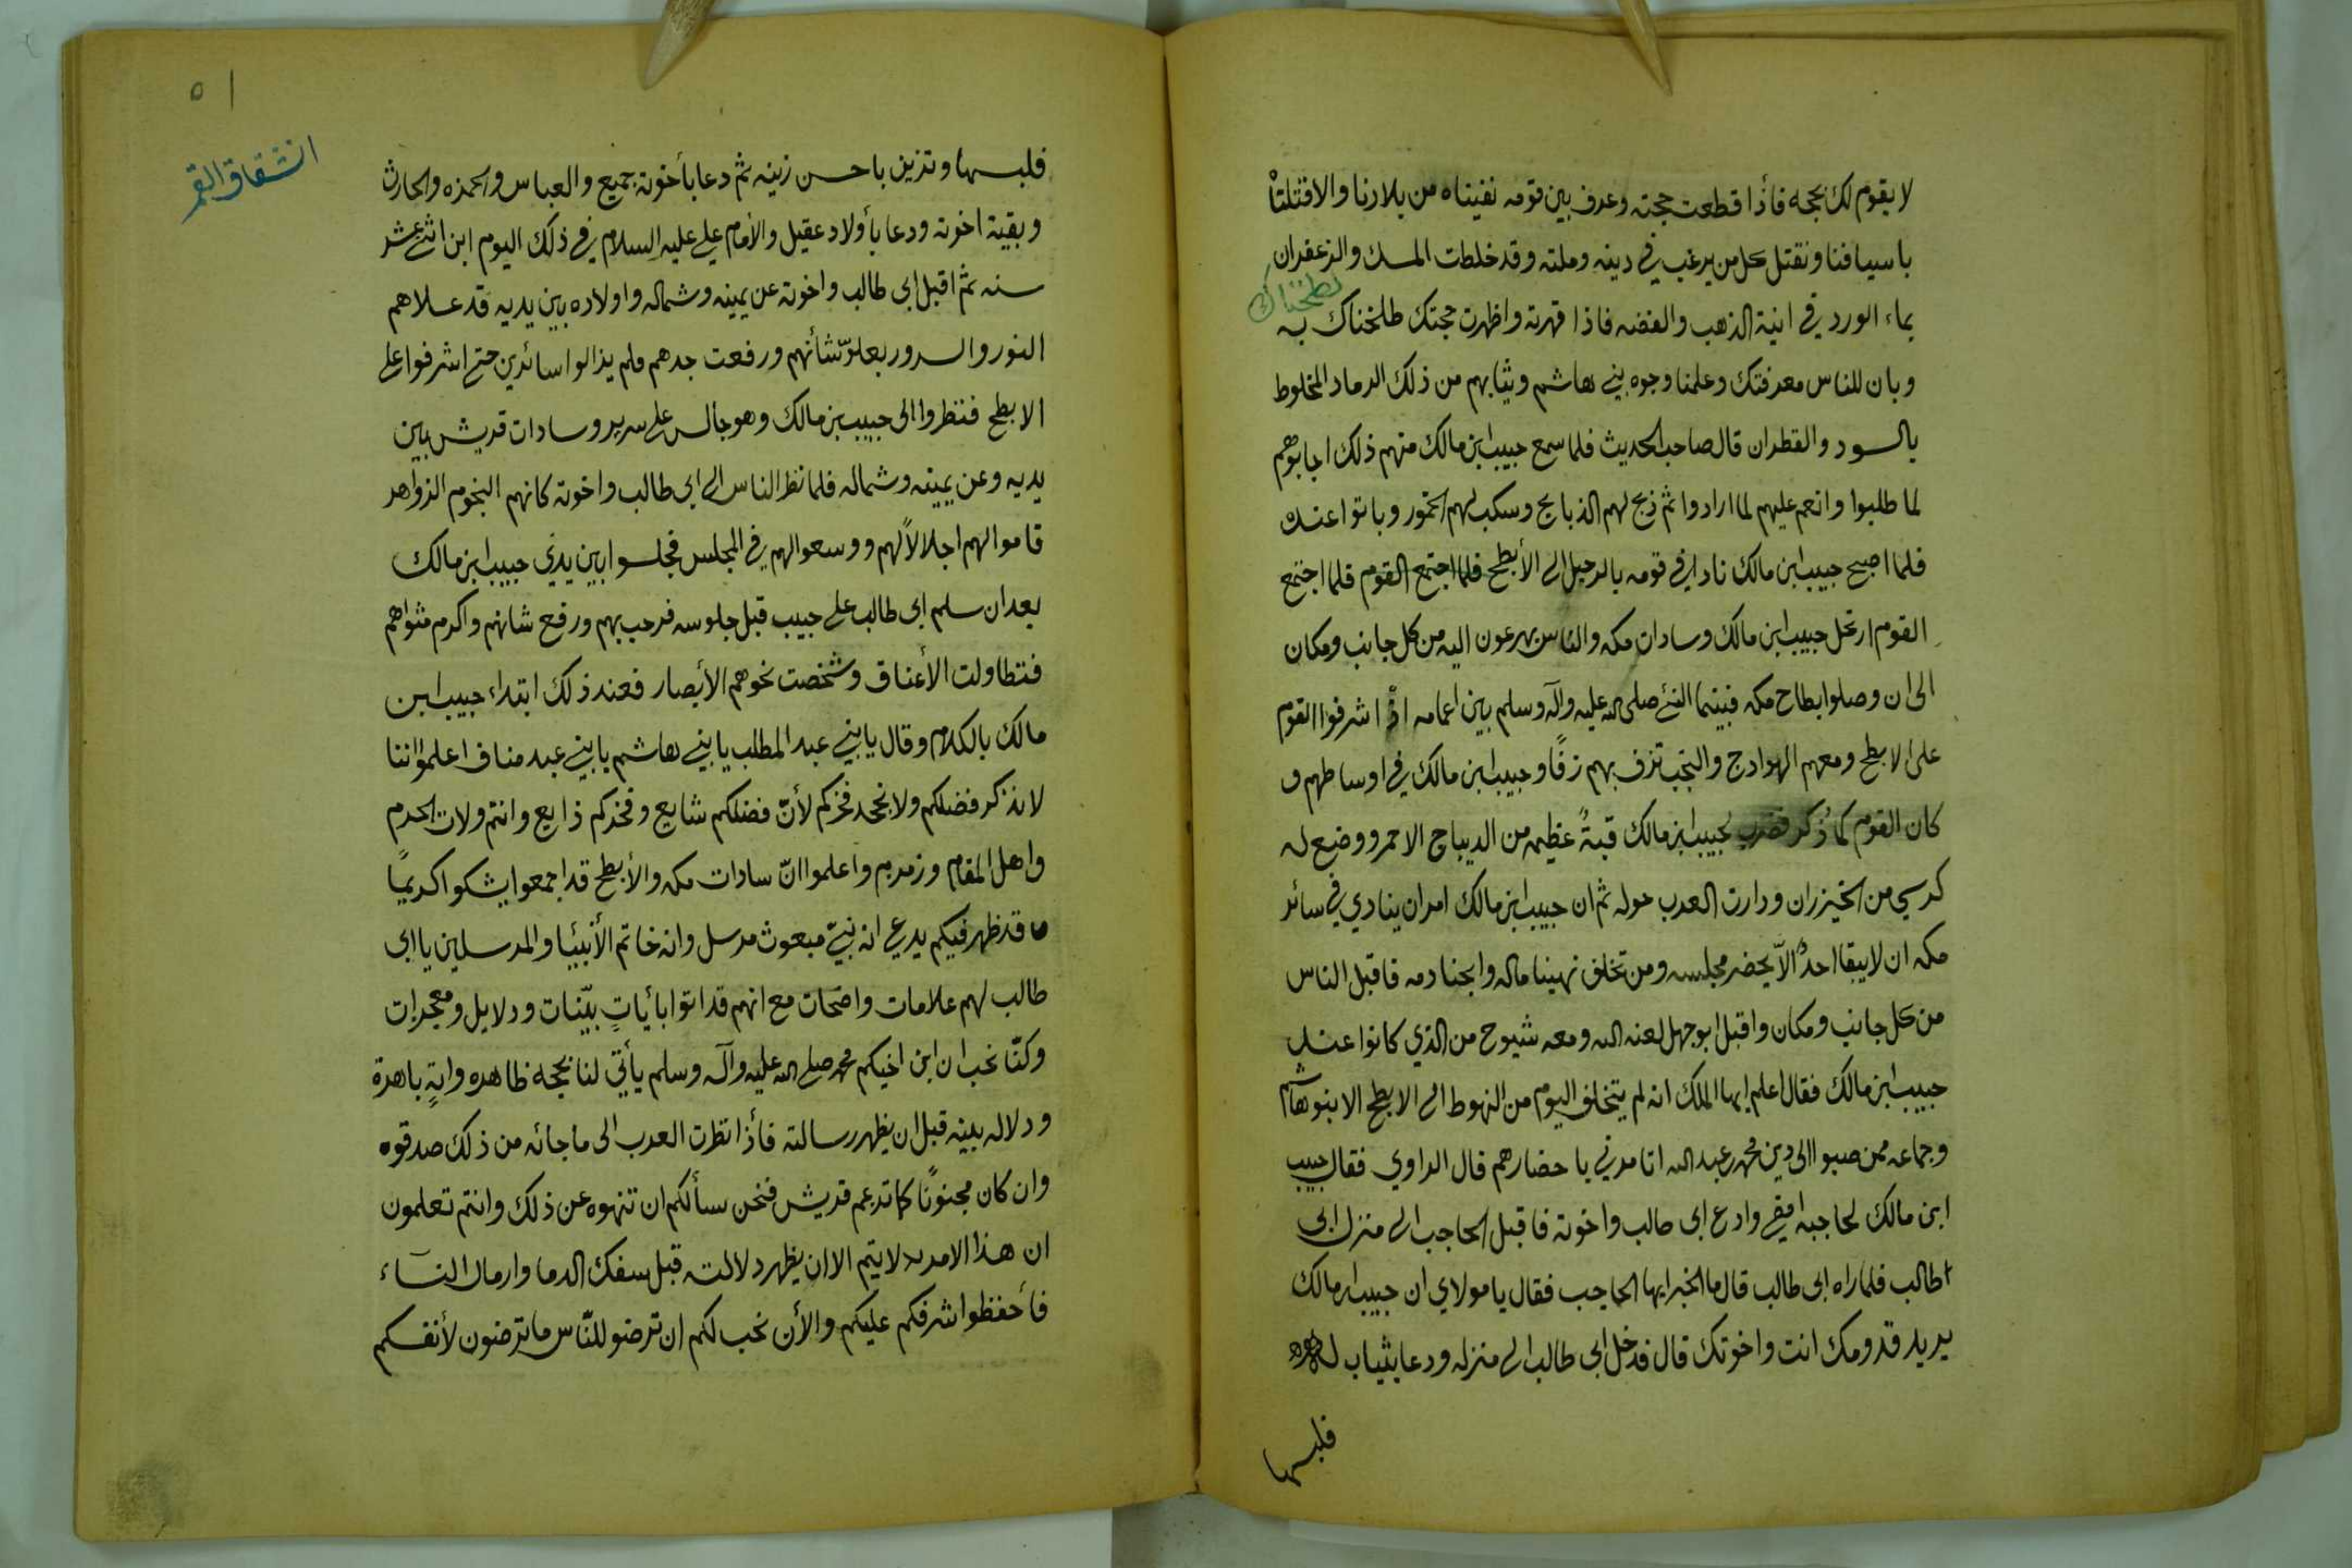 لا يقوم لك بحجه فأذا قطعت حجته وعرف بين قومه نفيناه من بلادنا والا قتلتاْ
باسيافنا ونقتل كل من يرغب في دينه وملته وقد خلطت المسك والزعفران
بماء الورد في انية الذهب والفضه فاذا قهرته واظهرت حجتك طلخناك به
لطخناك
وبان للناس معرفتك وعلمنا وجوه بني هاشم وثيابهم من ذلك الرماد المخلوط
بالسود والقطران قال صاحب الحديث فلما سمع حبيب ابن مالك منهم ذلك اجابوهم
لما طلبوا وانعم عليهم لما ارادوا ثم ذبح لهم الذبايح وسكب لهم الخمور وباتوا عنده
فلما اصبح حبيب ابن مالك نادا في قومه بالرحيل الى الأبطح فلما اجتمع القوم فلما اجتمع
القوم ارتحل حبيب ابن مالك وسادات مكه والناس يهرعون اليه من كل جانب ومكان
الى ان وصلوا بطاح مكه فبينما النبي صلى الله عليه وآله وسلم بين اعمامه اذْ اشرفوا القوم
على الابطح ومعهم الهوادج والنجب تزف بهم زفًا وحبيب ابن مالك في اوساطهم و
كان القوم كما ذُكر فضرب لحبيب ابن مالك قبةً عظيمه من الديباج الاحمر ووضع له
كرسي من الخيزران ودارت العرب حوله ثم ان حبيب ابن مالك امر ان ينادي في سائر
مكه ان لا يبقا احدٌ الاّ يحضر مجلسه ومن تخلف نهبنا ماله وابحنا دمه فاقبل الناس
من كل جانب ومكان واقبل ابو جهل لعنه الله ومعه شيوح من الذي كانوا عند
حبيب ابن مالك فقال اعلم ايها الملك انه لم يتخلف اليوم من النهوط الى الابطح الا بنو هاشم
وجماعه ممن صبوا الى دين محمد بن عبد الله اتامرني باحضارهم قال الراوي فقال حبيب
ابن مالك لحاجبه امضي وادع ابى طالب واخوته فاقبل الحاجب الى منزل ابى
طالب فلما راه ابى طالب قال ما الخبر ايها الحاجب فقال يا مولاي ان حبيب ابن مالك
يريد قدومك انت واخوتك قال فدخل ابى طالب الى منزله ودعا بثياب له
فلبسها
٥١
انشقاق القمر
فلبسها وتزين باحسن زينه ثم دعا بأخوته جميع والعباس والحمزه والحارث
وبقية اخوته ودعا بأولاد عقيل والأمام علي عليه السلام في ذلك اليوم ابن اثني عشر
سنه ثم اقبل ابى طالب واخوته عن يمينه وشماله واولاده بين يديه قد علاهم
النور والسرور بعلوّ شأنهم ورفعت جدهم فلم يذالوا سائرين حتى اشرفوا على
الابطح فنظروا الى حبيب بن مالك وهو جالس على سرير وسادات قريش بين
يديه وعن يمينه وشماله فلما نظر الناس الى ابى طالب واخوته كانهم النجوم الزواهر
قاموا لهم اجلالاً لهم ووسعوا لهم في المجلس فجلسوا بين يدي حبيب ابن مالك
بعد ان سلم ابى طالب على حبيب قبل جلوسه فرحب بهم ورفع شانهم واكرم مثواهم
فتطاولت الأعناق وشخصت نحوهم الأبصار فعند ذلك ابتداء حبيب ابن
مالك بالكلام وقال يا بني عبد المطلب يا بني هاشم يا بني عبد مناف اعلموا اننا
لا نذكر فضلكم ولا نجحد فخركم لأنّ فضلكم شايع وفخركم ذايع وانتم ولات الحرم
واهل المقام وزمزم واعلموا انّ سادات مكه والأبطح قد اجمعوا يشكوا كريمًا
ما قد ظهر فيكم يدعي انه نبيّ مبعوث مرسل وانه خاتم الأنبئيا والمرسلين يا ابى
طالب لهم علامات واضحات مع انهم قد اتوا بأياتٍ بيّنات ودلايل ومعجزات
وكنّا نحب ان ابن اخيكم محمد صلى الله عليه وآله وسلم يأتي لنا بحجه ظاهره وايةٍ باهرة
ودلاله بينه قبل ان يظهر رسالته فأذا نظرت العرب الى ما جائه من ذلك صدقوه
وان كان مجنونًا كما تدعم قريش فنحن سألكم ان تنهوه عن ذلك وانتم تعلمون
ان هذا الامر لا يتم الا ان يظهر دلالته قبل سفك الدما وارمال النساء
فأحفظوا شرفكم عليكم والأن نحب لكم ان ترضو للنّاس ما ترضون لأنفسكم